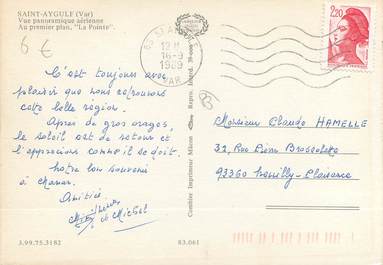 SAINT-AYGULF (Var)
Vue panoramique aérienne
Au premier plan, "La Pointe".
6 €
C'est toujours avec
plaisir que nous retrouvons
cette belle région.
Après de gros orages,
le soleil est de retour et
l'apprécions comme il se doit.
Notre bon souvenir
à
Amitiés
et Michel
3.99.75.3182
83.061
Combier Imprimeur Mâcon
Repro. Interd.
16-9
1989
VAR
2,20
93
Monsieur Claude HAMELLE
32, Rue Pierre Brossolette
93360 Neuilly-Plaisance